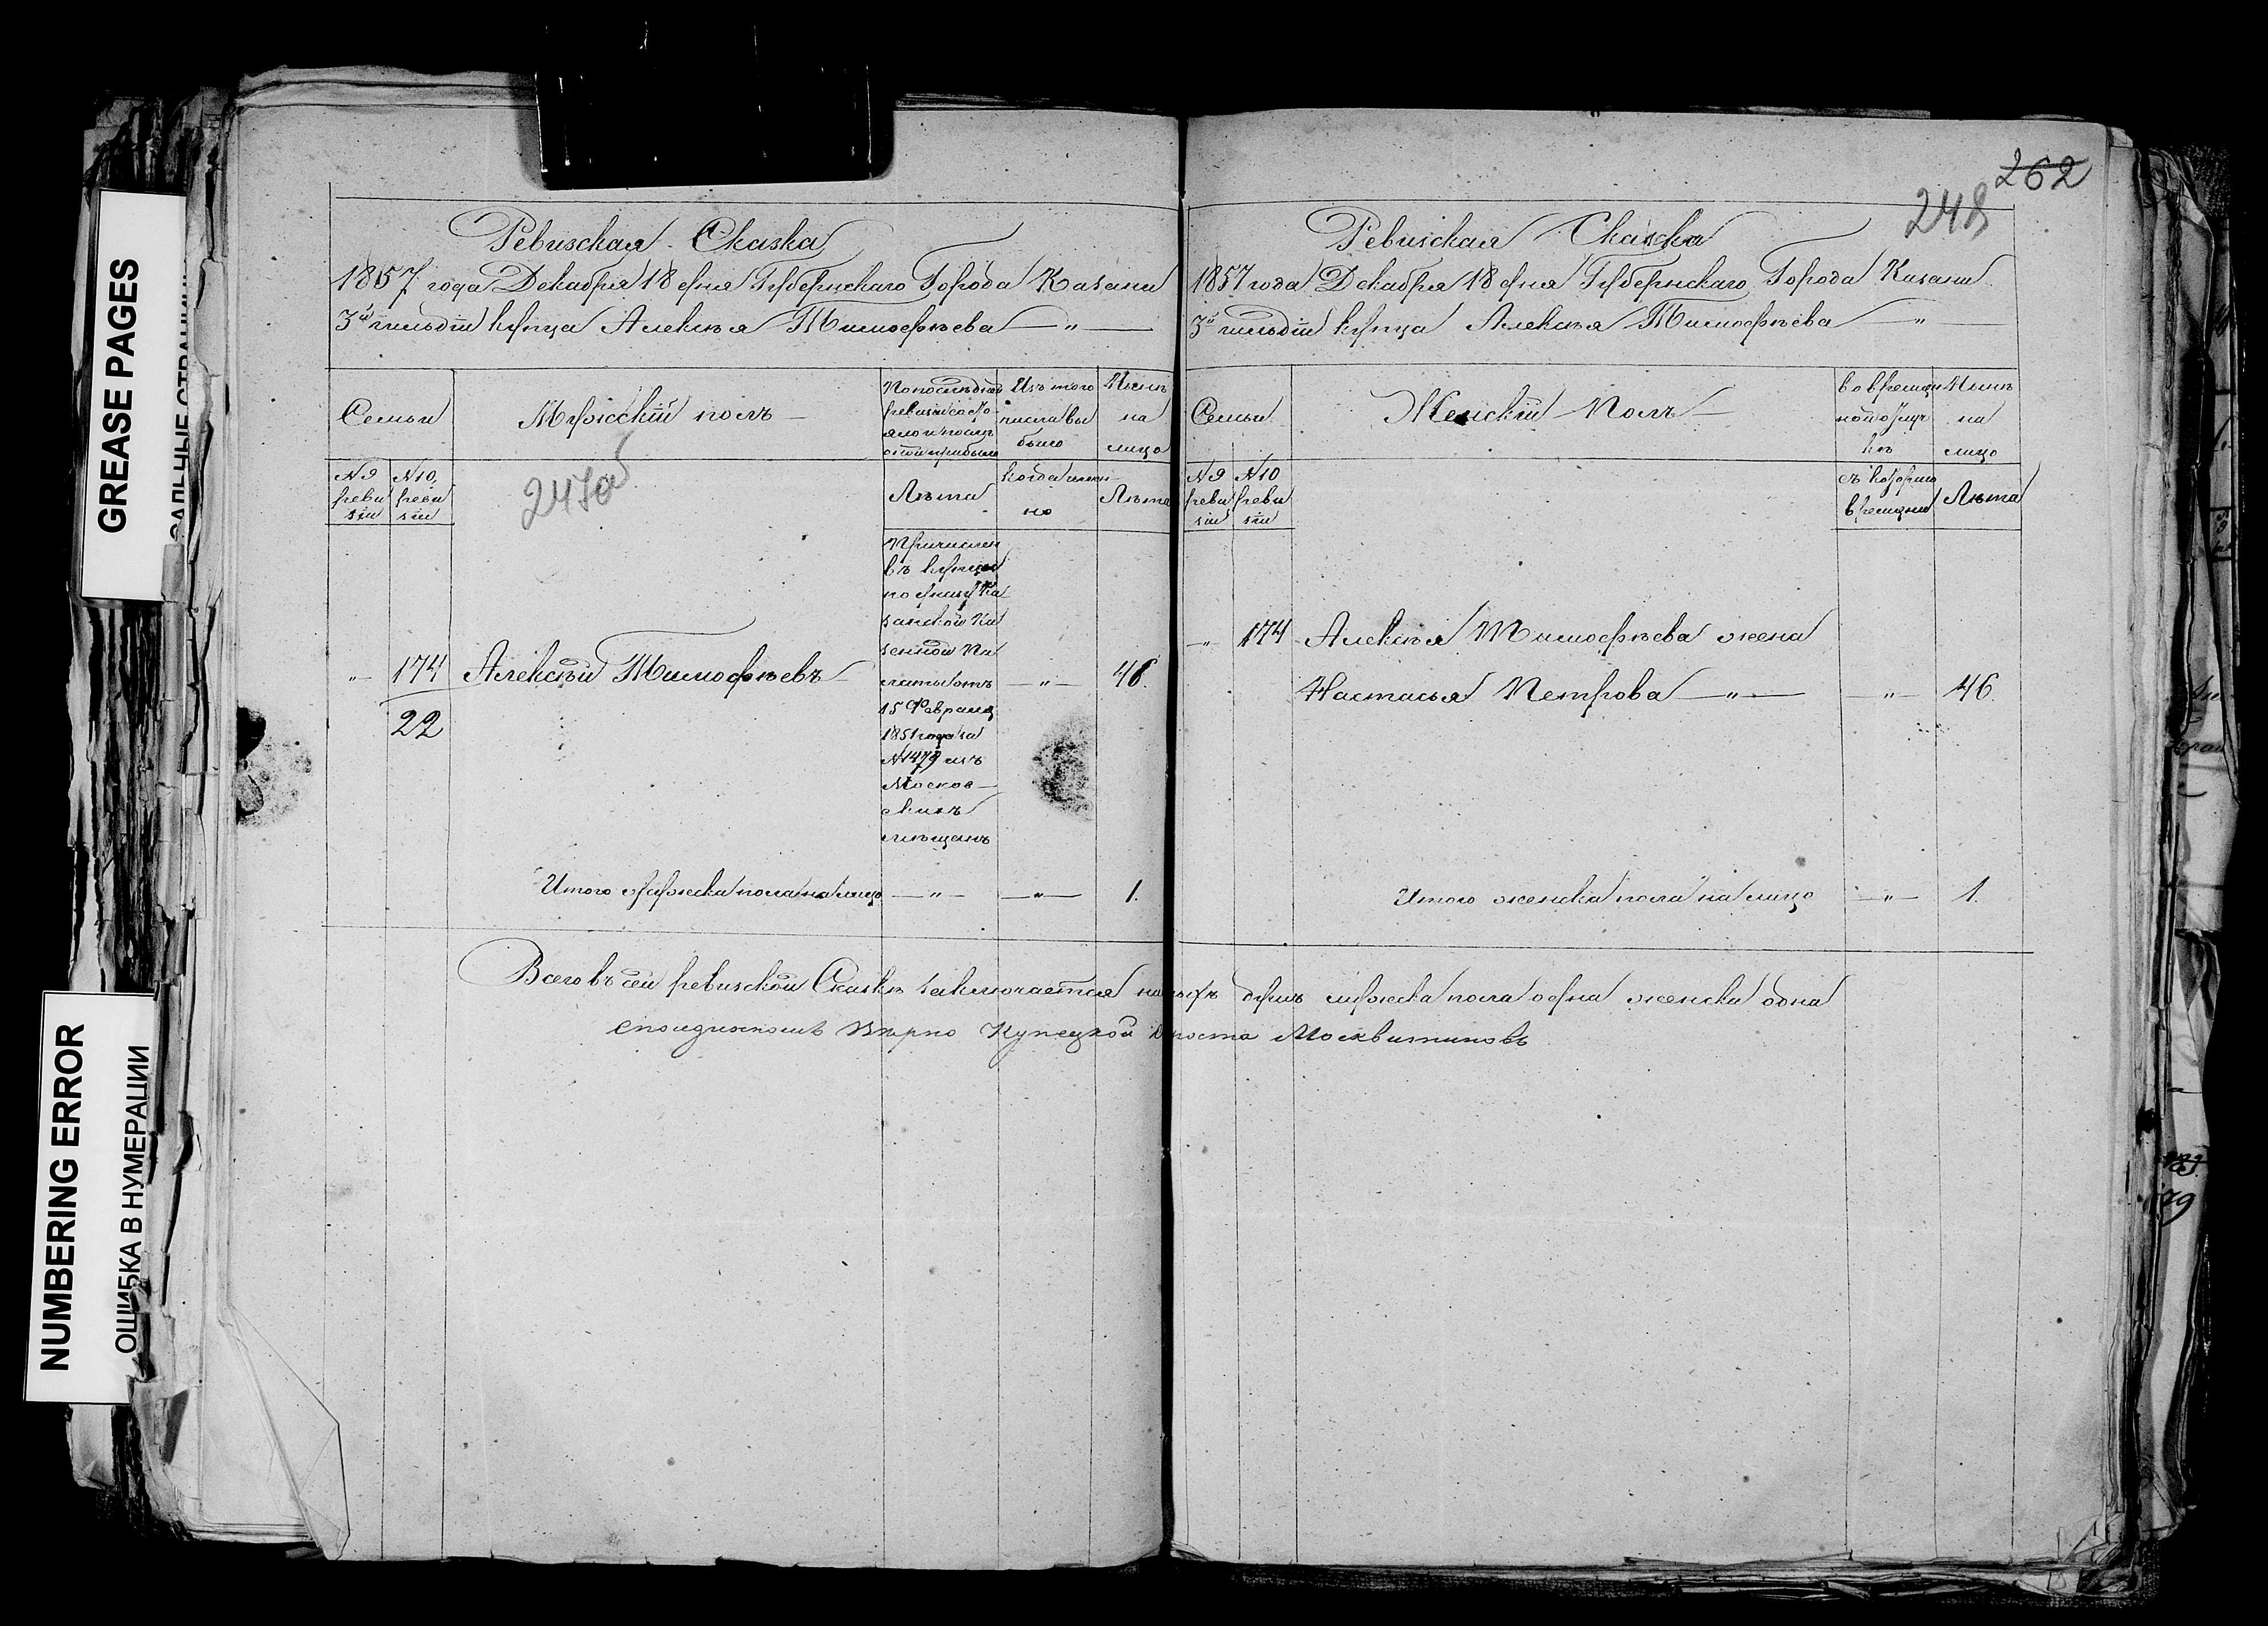 GREASE PAGES
NUMBERING ERROR
ОШИБКА В НУМЕРАЦИИ
Ревизская Сказка
1857 года Декабря 18 дня Губернскаго Города Казани
3й гильдіи купца Алексѣя Тимофѣева — " —
Семьи
Мужескій полъ —
По послѣдней
ревизіи состо-
яло и послѣ
оной прибыло
Изъ того
числа вы
было
Нынѣ
на
лицо
№ 9
реви
зіи
№ 10
реви
зіи
247об
Лѣта
Когда имян
но
Лѣта
"
174
22
Алексѣй Тимофѣевъ
Причислен
въ купцы
по указу Ка
занской Ка
зенной Па
латы отъ
15 Февраля
1851 года за
№ 1479 изъ
Москов-
скихъ
мѣщанъ
— " —
46.
Итого мужеска пола на лицо — " — — " — 1.
262
248
Ревизская Сказка
1857 года Декабря 18 дня Губернскаго Города Казани
3й гильдіи купца Алексѣя Тимофѣева — "
Семьи
Женскій Полъ —
во времен
ной отлуч
кѣ
Нынѣ
на
лицо
№ 9
реви
зіи
№ 10
реви
зіи
съ котораго
времени
Лѣта
" 174 Алексѣя Тимофѣева жена
Настасья Петрова — " — — " — 46.
Итого женска пола на лицо — " — 1.
Всего въ сей ревизской Сказкѣ заключается наличныхъ душъ мужеска пола одна женска одна
Съ подлиннымъ Вѣрно Купецкой Староста Москвитиновъ